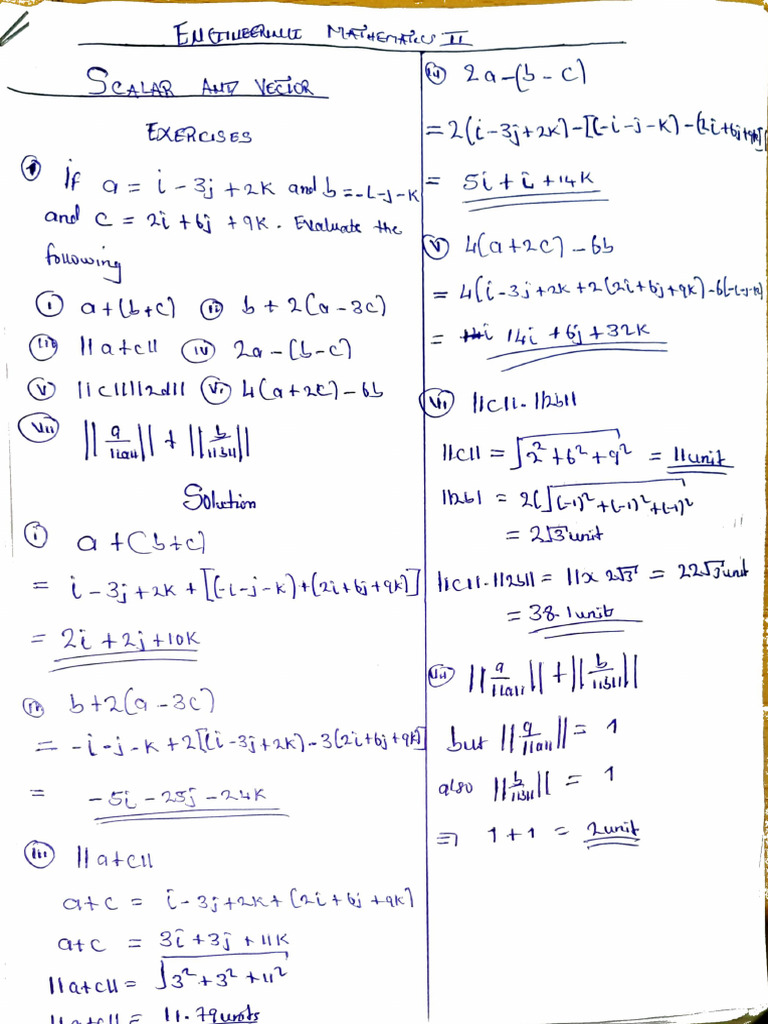 ENGINEERING MATHEMATICS II
SCALAR AND VECTOR
EXERCISES
① If a = i - 3j + 2k and b = -i-j-k
and c = 2i + 6j + 9k. Evaluate the
following
(i) a+(b+c) (ii) b + 2(a - 3c)
(iii) ||a+c|| (iv) 2a - (b-c)
(v) ||c||||2d|| (vi) 4(a+2c) - 6b
(vii) ||a/||a|||| + ||b/||b||||
Solution
(i) a + (b+c)
= i - 3j + 2k + [(-i-j-k)+(2i+6j+9k)]
= 2i + 2j + 10k
(ii) b+2(a - 3c)
= -i-j-k+2[(i-3j+2k)-3(2i+6j+9k)]
= -5i - 25j - 24k
(iii) ||a+c||
a+c = i-3j+2k+(2i+6j+9k)
a+c = 3i + 3j + 11k
||a+c|| = √3² + 3² + 11²
||a+c|| = 11.79units
(iv) 2a-(b-c)
= 2(i-3j+2k)-[(-i-j-k)-(2i+6j+9k)]
= 5i + i + 14k
(v) 4(a+2c) - 6b
= 4(i-3j+2k+2(2i+6j+9k)-6(-i-j-k)
= 14i + 6j + 32k
(vi) ||c||-||2b||
||c|| = √2² + 6² + 9² = 11unit
||2b| = 2(√(-1)² + (-1)² + (-1)²
= 2√3 unit
||c||-||2b|| = 11 x 2√3 = 22√3unit
= 38.1unit
(vii) ||a/||a|||| + ||b/||b||||
but ||a/||a|||| = 1
also ||b/||b|||| = 1
⇒ 1 + 1 = 2unit